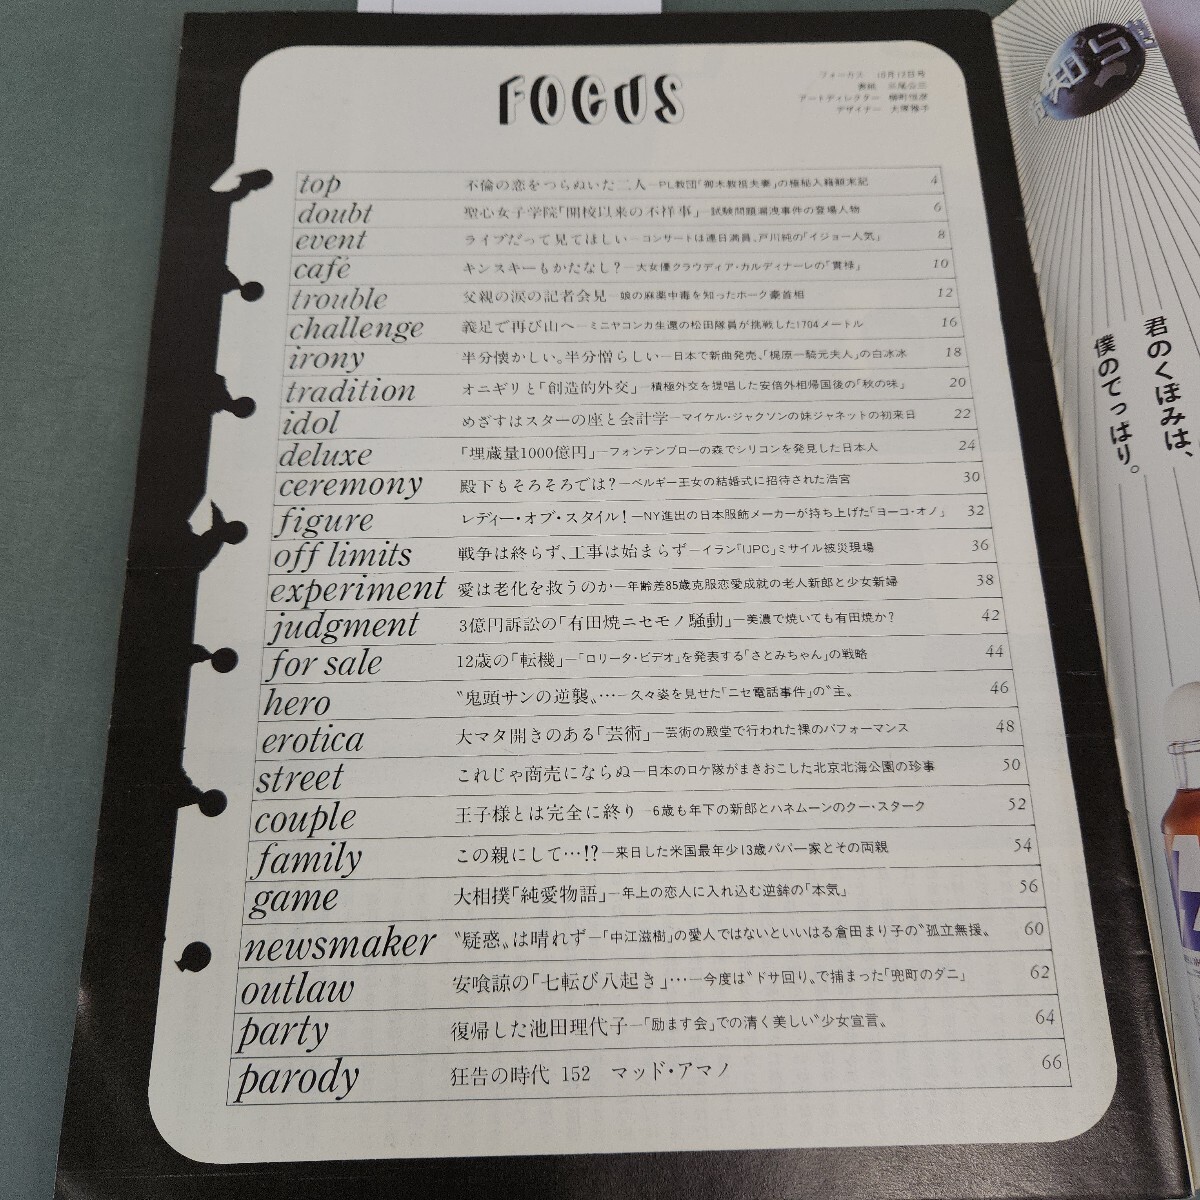 FOCUS
フォーカス 10月12日号
表紙 三尾公三
アートディレクター
デザイナー
top 不倫の恋をつらぬいた二人―PL教団「御木教祖夫妻」の極秘入籍顚末記 4
doubt 聖心女子学院「開校以来の不祥事」―試験問題漏洩事件の登場人物 6
event ライブだって見てほしい―コンサートは連日満員、戸川純の「イジョー人気」 8
café キンスキーもかたなし？―大女優クラウディア・カルディナーレの〝貫禄〟 10
trouble 父親の涙の記者会見―娘の麻薬中毒を知ったホーク豪首相 12
challenge 義足で再び山へ―ミニヤコンカ生還の松田隊員が挑戦した1704メートル 16
irony 半分懐かしい。半分憎らしい―日本で新曲発売、「梶原一騎元夫人」の白冰冰 18
tradition オニギリと「創造的外交」―積極外交を提唱した安倍外相帰国後の「秋の味」 20
idol めざすはスターの座と会計学―マイケル・ジャクソンの妹ジャネットの初来日 22
deluxe 「埋蔵量1000億円」―フォンテンブローの森でシリコンを発見した日本人 24
ceremony 殿下もそろそろでは？―ベルギー王女の結婚式に招待された浩宮 30
figure レディー・オブ・スタイル！―NY進出の日本服飾メーカーが持ち上げた「ヨーコ・オノ」 32
off limits 戦争は終らず、工事は始まらず―イラン「IJPC」ミサイル被災現場 36
experiment 愛は老化を救うのか―年齢差85歳克服恋愛成就の老人新郎と少女新婦 38
judgment 3億円訴訟の「有田焼ニセモノ騒動」―美濃で焼いても有田焼か？ 42
for sale 12歳の「転機」―「ロリータ・ビデオ」を発表する「さとみちゃん」の戦略 44
hero 〝鬼頭サンの逆襲〟…―久々姿を見せた「ニセ電話事件」の〝主〟 46
erotica 大マタ開きのある「芸術」―芸術の殿堂で行われた裸のパフォーマンス 48
street これじゃ商売にならぬ―日本のロケ隊がまきおこした北京北海公園の珍事 50
couple 王子様とは完全に終り―6歳も年下の新郎とハネムーンのクー・スターク 52
family この親にして…!?―来日した米国最年少13歳パパ一家とその両親 54
game 大相撲「純愛物語」―年上の恋人に入れ込む逆鉾の「本気」 56
newsmaker 〝疑惑〟は晴れず―「中江滋樹」の愛人ではないといいはる倉田まり子の〝孤立無援〟 60
outlaw 安喰諒の「七転び八起き」…―今度は〝ドサ回り〟で捕まった「兜町のダニ」 62
party 復帰した池田理代子―「励ます会」での清く美しい〝少女宣言〟 64
parody 狂告の時代 152 マッド・アマノ 66
君のくぼみは、
僕のでっぱり。